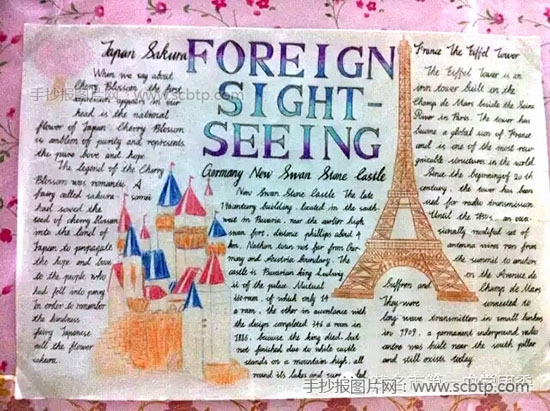 FOREIGN
SIGHT-
SEEING
Japan Sakura
When we say about
Cherry Blossom
appears in our
head is the national
flower of Japan Cherry Blossom
is emblem of purity and represents
the pure love and hope
The legend of the Cherry
Blossom was romantic. A
fairy called sakura
had sowed the
seed of cherry blossom
onto the land of
Japan to propagate
the hope and love
to the people who
had fill into
In order to remember
the kindness
fairy Japanese
call the flower
sakura.
Germany New Swan Stone Castle
New Swan Stone Castle. The late
19century building, located in the south
west in Bavaria, near the earlier high
swan fort, distance phillips about 4
km. Nathan town not far from Ger-
many and Austria boundary. The
castle is Bavarian king Ludwig
ii of the palace. Mutual
360 room, of which only 14
a room, the other in accordance with
the design completed 346 a room in
1886, because the king died, but
not finished due to white castle
stands on a mountain high, all
round its lakes and
France The Eiffel Tower
The Eiffel Tower is an
iron tower built on the
Champ de Mars beside the Seine
River in Paris. The tower has
become a global icon of France
and is one of the most reco-
gnizable structures in the world.
Since the beginning of 20th
century, the tower has been
used for radio transmission.
Until the 1950s, an occa-
sionally modified set of
antenna wires ran from
the summit to anchors
on the Avenue de
Suffren and Champ de Mars
They were connected to
long wave transmitters in small bunkers
in 1909, a permanent underground radio
centre was built near the south pillar
and still exists today
手抄报图片网:www.scbtp.com
手抄报图片网:www.scbtp.com